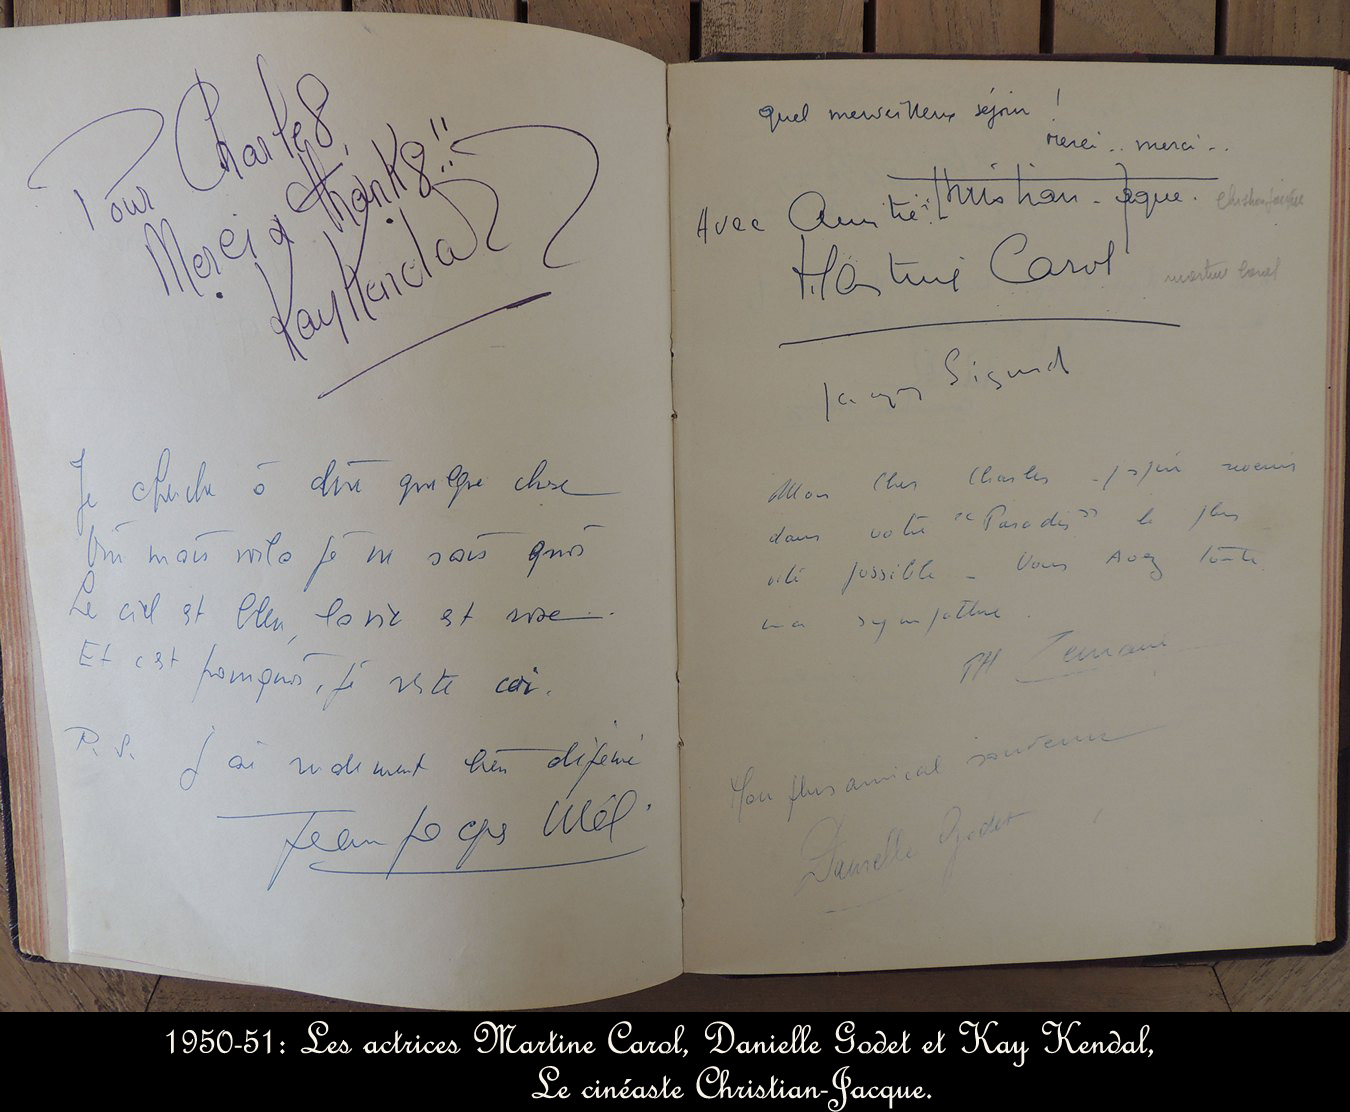 Pour Charles,
Merci & thanks!!
Kay Kendall
Je cherche à dire quelque chose
Oui mais voilà je ne sais quoi
Le ciel est bleu, la vie est rose
Et c'est pourquoi, je reste coi.
P.S. J'ai rudement bien déjeuné
Jean Jacques
quel merveilleux séjour !
merci.. merci..
Christian-Jaque.
Christian-Jacque
Avec Amitié
Martine Carol
martine Carol
Jacques Sigurd
Mon cher Charles - j'espère revenir
dans votre "Paradis" le plus
vite possible - Vous avez toute
ma sympathie.
Mon plus amical souvenir
Danielle Godet
1950-51: Les actrices Martine Carol, Danielle Godet et Kay Kendal,
Le cinéaste Christian-Jacque.